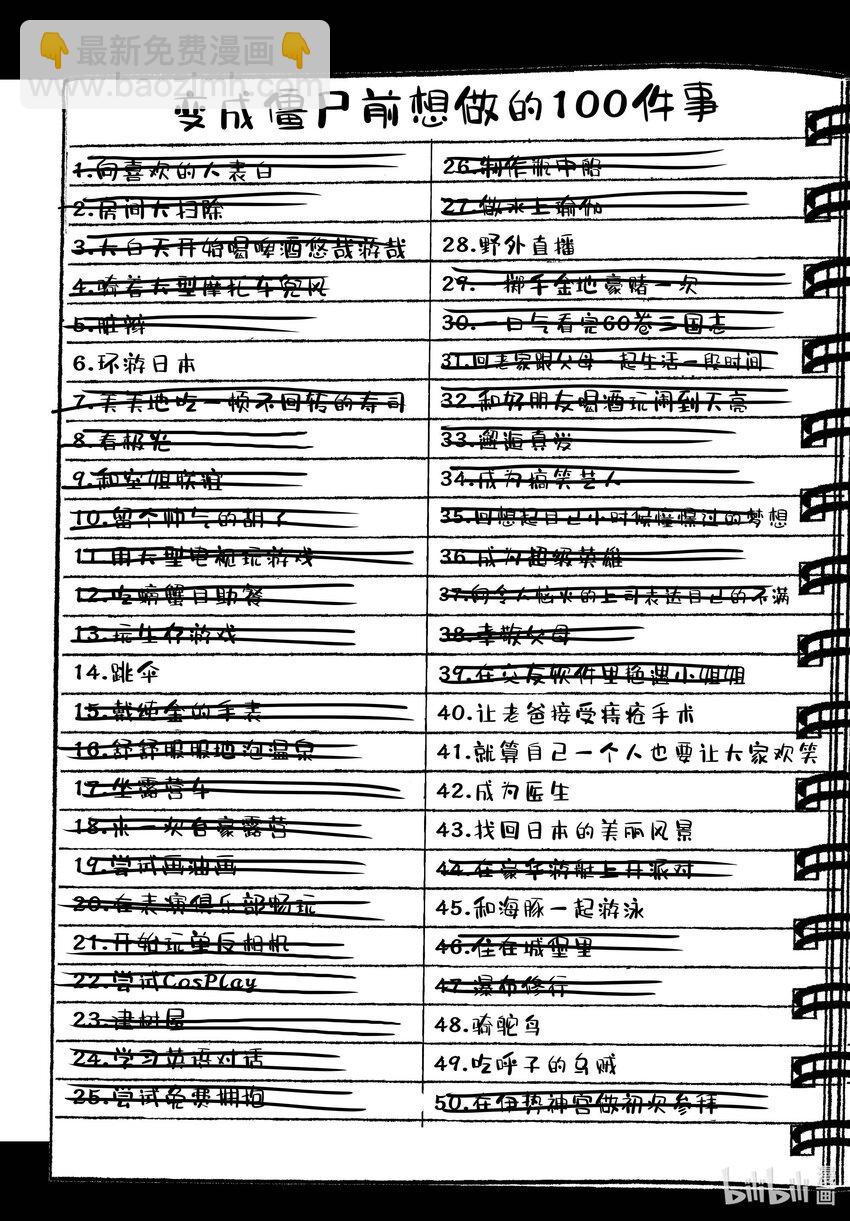 👇最新免费漫画👇
www.baozimh.com
变成僵尸前想做的100件事
1.向喜欢的人表白
2.房间大扫除
3.大白天开始喝啤酒悠哉游哉
4.骑着大型摩托车兜风
5.脏辫
6.环游日本
7.美美地吃一顿不回转的寿司
8.看极光
9.和空姐联谊
10.留个帅气的胡子
11.用大型电视玩游戏
12.吃螃蟹自助餐
13.玩生存游戏
14.跳伞
15.戴纯金的手表
16.舒舒服服地泡温泉
17.坐露营车
18.来一次自豪露营
19.尝试画油画
20.在表演俱乐部畅玩
21.开始玩单反相机
22.尝试CosPlay
23.建树屋
24.学习英语对话
25.尝试免费拥抱
26.制作瓶中船
27.做水上瑜伽
28.野外直播
29.一掷千金地豪赌一次
30.一口气看完60卷三国志
31.回老家跟父母一起生活一段时间
32.和好朋友喝酒玩闹到天亮
33.邂逅真爱
34.成为搞笑艺人
35.回想起自己小时候憧憬过的梦想
36.成为超级英雄
37.向令人恼火的上司表达自己的不满
38.孝敬父母
39.在交友软件里艳遇小姐姐
40.让老爸接受痔疮手术
41.就算自己一个人也要让大家欢笑
42.成为医生
43.找回日本的美丽风景
44.在豪华游艇上开派对
45.和海豚一起游泳
46.住在城堡里
47.瀑布修行
48.骑鸵鸟
49.吃呼子的乌贼
50.在伊势神宫做初次参拜
bilibili 漫画